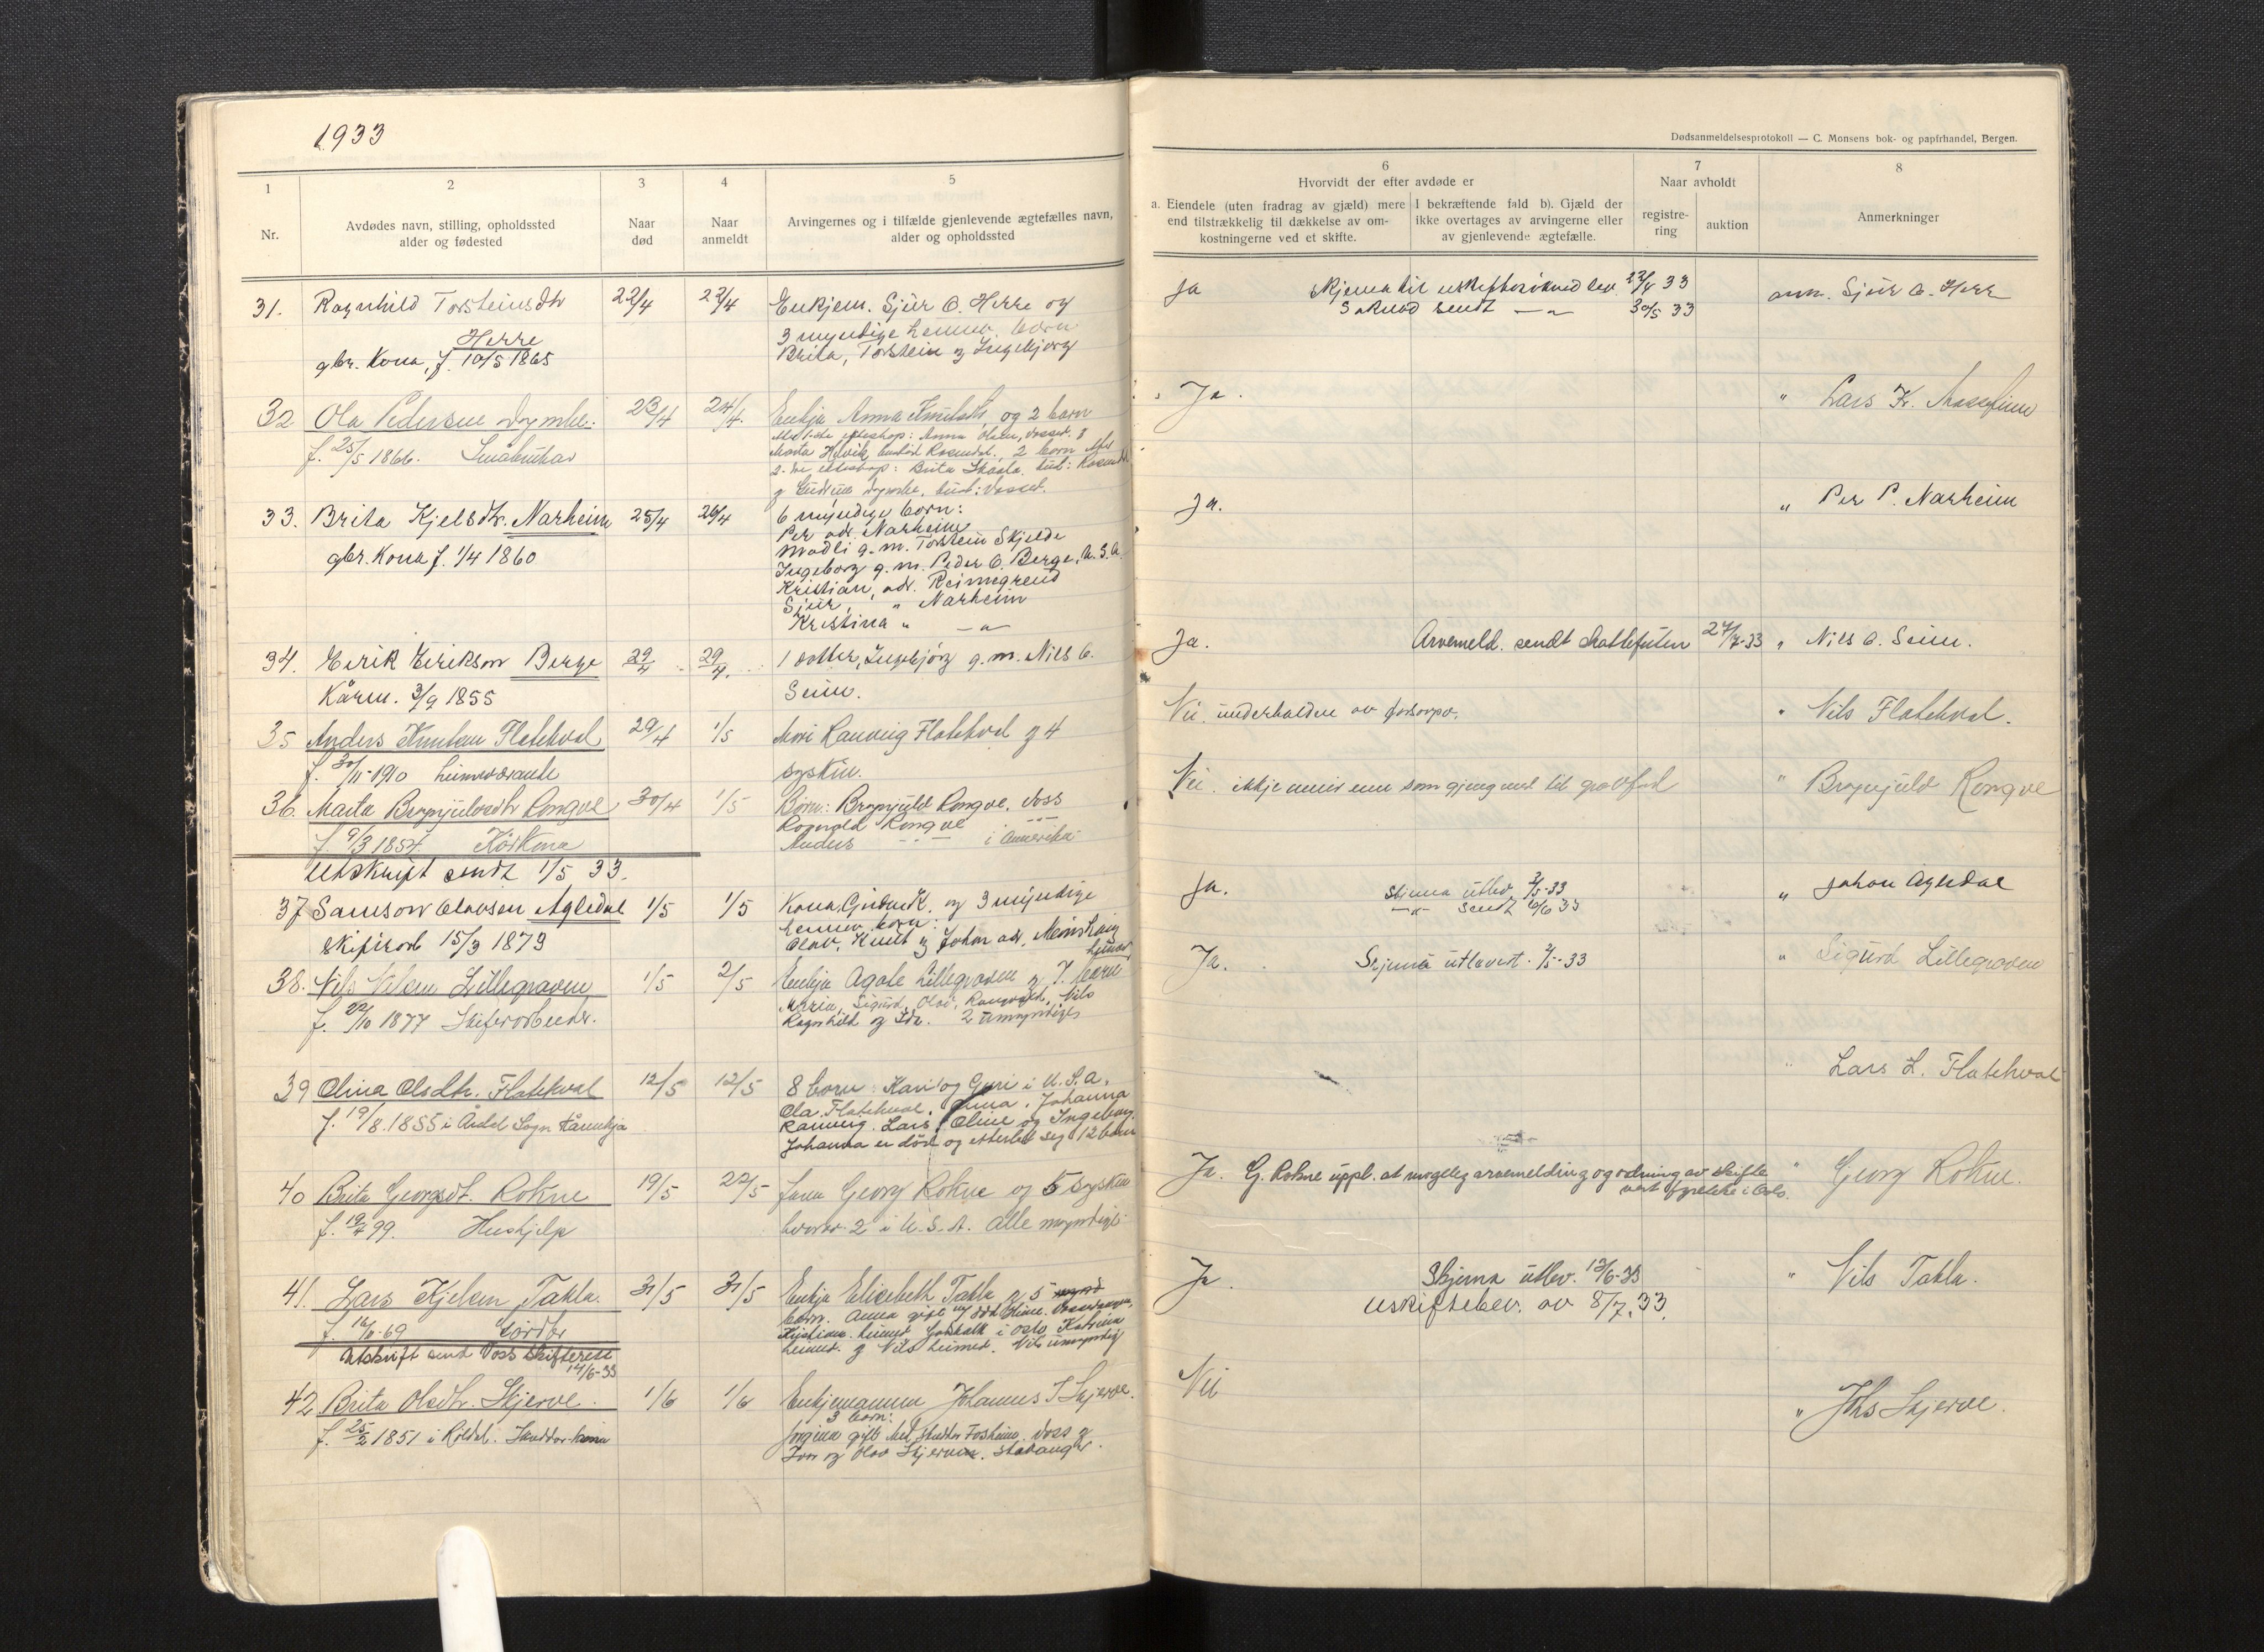 1933
Dødsanmeldelsesprotokoll — C. Monsens bok- og papirhandel, Bergen.
1
2
3
4
5
6
7
8
Nr.
Avdødes navn, stilling, opholdssted
alder og fødested
Naar
død
Naar
anmeldt
Arvingernes og i tilfælde gjenlevende ægtefælles navn,
alder og opholdssted
Hvorvidt der efter avdøde er
a. Eiendele (uten fradrag av gjæld) mere
end tilstrækkelig til dækkelse av om-
kostningerne ved et skifte.
I bekræftende fald b). Gjæld der
ikke overtages av arvingerne eller
av gjenlevende ægtefælle.
Naar avholdt
registre-
ring
auktion
Anmerkninger
31. Ragnhild Torsteinsdtr
Herre
gbr. Kona, f. 10/5 1865
22/4
22/4
Enkjem. Sjur O. Herre og
3 myndige born
Brita, Torstein og Ingebjorg
Ja
23/4 33
Søknad sendt — " — 30/5 33
anm. Sjur O. Herre
32 Ola Pedersen Dymbe.
f. 25/5 1866.
23/4
24/4.
Enkja Anna Knutsdtr, og 2 born
Anna Olsen, Vossev. og
Marta Rosendal, 2 born
Brita
Vossev.
Ja.
" Lars K.
33. Brita Kjelsdtr. Narheim
gbr. Kona f. 1/4 1860
25/4
26/4
6 myndige born:
Per adr. Narheim
Madli g.m. Torstein Skjelde
Ingeborg g.m. Peder O. Berge, U.S.A.
Kristian, adr. Reimegrend
Sjur, " Narheim
Kristina " — " —
Ja.
" Per P. Narheim
34. Eirik Eirikson Berge
Kårm. 3/9 1855
29/4
29/4.
1 dotter, Ingebjörg g.m. Nils O.
Seim.
Ja.
Arvemeld. sendt skattefuten 27/7-33
" Nils O. Seim.
35 Anders Knutsen Flatekval
f. 30/11-1910 heimeværande
29/4
1/5
Mori Ranveig Flatekval og 4
syskin.
Nei. underhalden av forsorga.
" Nils Flatekval.
36. Marta Brynjulvsdtr Rongve
f. 9/3 1854. Kårkona
30/4
1/5
Born: Brynjulv Rongve, Voss
Ragnvald Rongve — " —
Anders — " — i Amerika
Nei. ikkje meir enn som gjeng med til gravferd
" Brynjulv Rongve
Utskrift sendt 1/5 33.
37 Samson Olavsen Agledal
skiferarb 15/3 1879
1/5
1/5
Kona, K. og 3 myndige
born:
Olav, Knut og Johan adr.
Ja.
Skjema utlev. 2/5-33
— " — sendt 10/6 33
" Johan Agledal
38. Nils Nilsen Lillegraven
f. 22/10 1877 Skiferarbeider.
1/5
2/5
Enkja Agate Lillegraven og 7. born
Maria, Sigurd, Olav, Nils
Ragnhild og Ida. 2 umyndige
Ja.
Skjema utlevert. 2/5-33
" Sigurd Lillegraven
39 Olina Olsdtr. Flatekval
f. 19/8. 1855 i Årdal Sogn Kårenkja
12/5
12/5
8 born Kari og Guri i U.S.A.
Ola Flatekval. Anna. Johanna
Ranveig. Lars, Oline og Ingeborg.
Johanna er död og etterlet seg 12 born
Lars L. Flatekval
40 Brita Georgsdt. Rokne
f. 19/7 99. Hushjelp
19/5
22/5
Faren Georg Rokne og 5 Sysken
2 i U.S.A. Alle myndige
Ja. G. Rokne uppl. at mogeleg arvemelding og ordning av skifte
vert fyretekne i Oslo.
" Georg Rokne.
41. Lars Kjelsen Takla.
31/5
31/5
Enkja Elisabeth Takla og 5
born. Anna gift
i Oslo Katrina
heime og Nils heime. Nils umyndig
Ja.
Skjema utlev. 13/6-33
Uskiftebev. av 8/7. 33.
" Nils Takla.
Utskrift sendt Voss skifterett
14/6-33
42 Brita Olsdtr. Skjerve.
f. 25/2 1851 i Röldal.
1/6
1/6
Enkjemannen Johannes J Skjerve.
3 born:
gift Voss og
Jon og Olav Stavanger.
Nei
" Johs Skjerve.